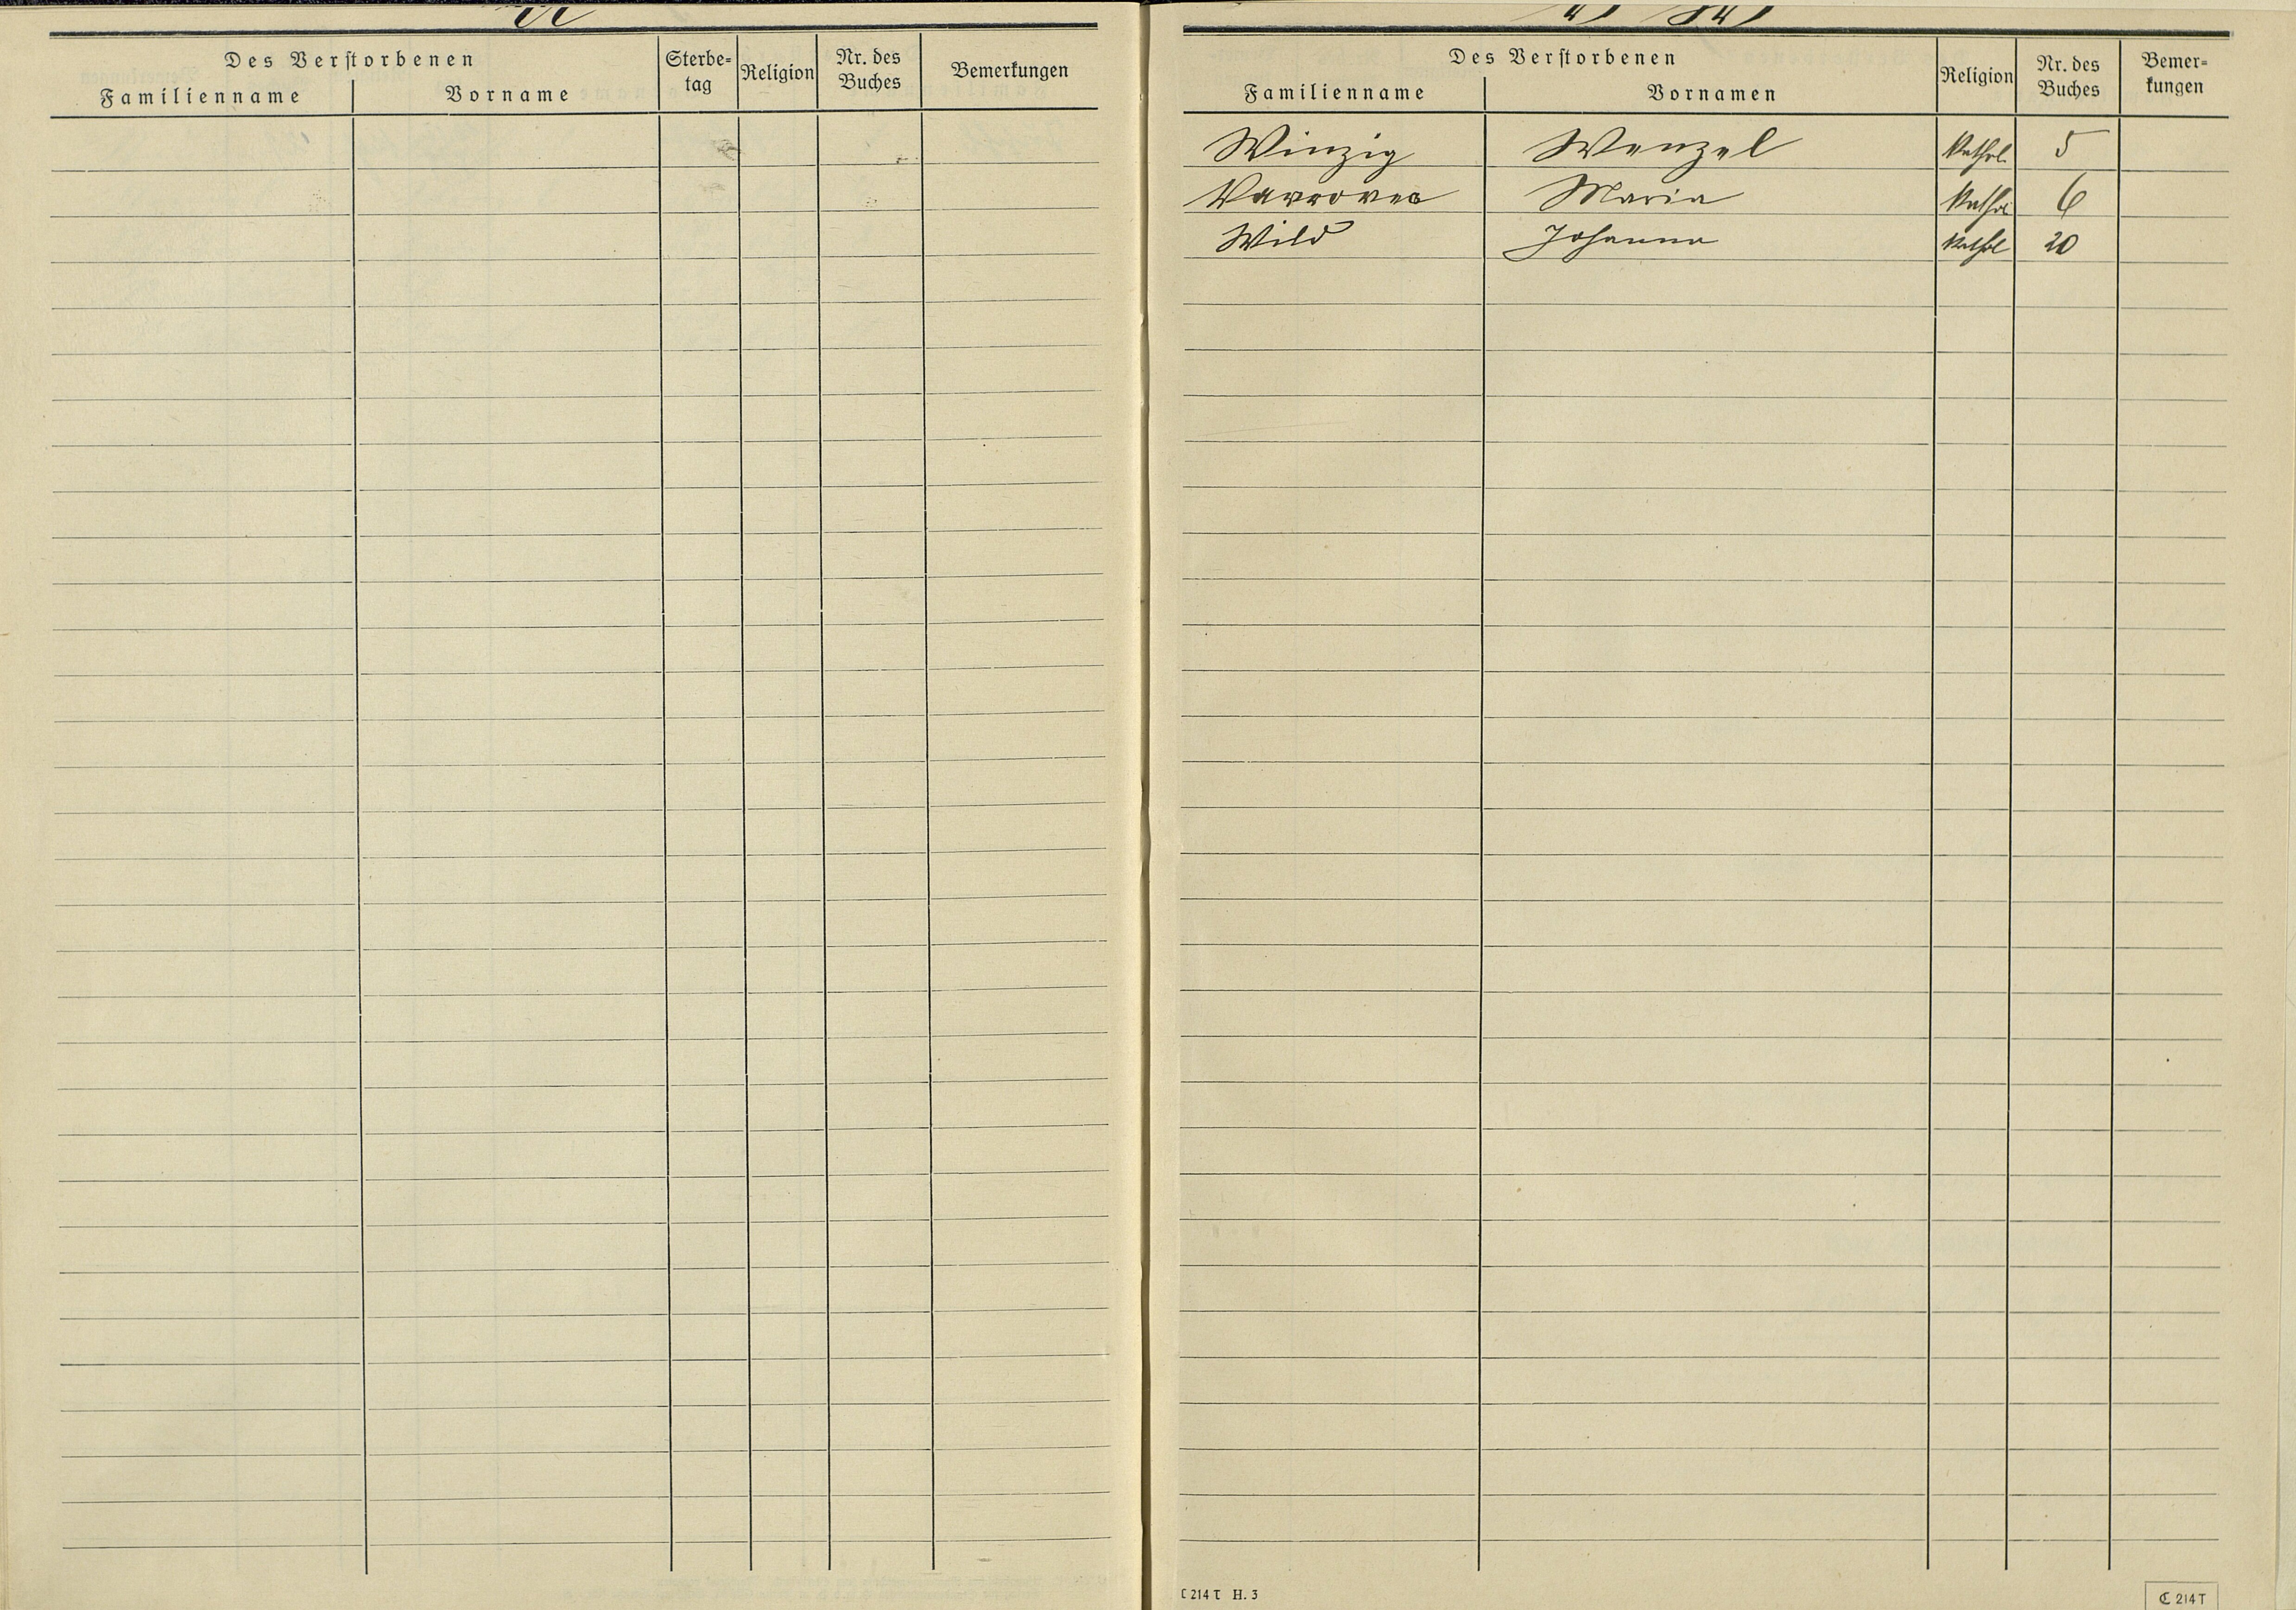 Des Verstorbenen
Familienname Vorname Sterbe=
tag Religion Nr. des
Buches Bemerkungen
Des Verstorbenen
Familienname Vornamen Religion Nr. des
Buches Bemer=
kungen
Winzig Wenzel Kathol. 5
Maria Kathol 6
Wild Johanna Kathol 20
C 214 T H. 3
C 214 T